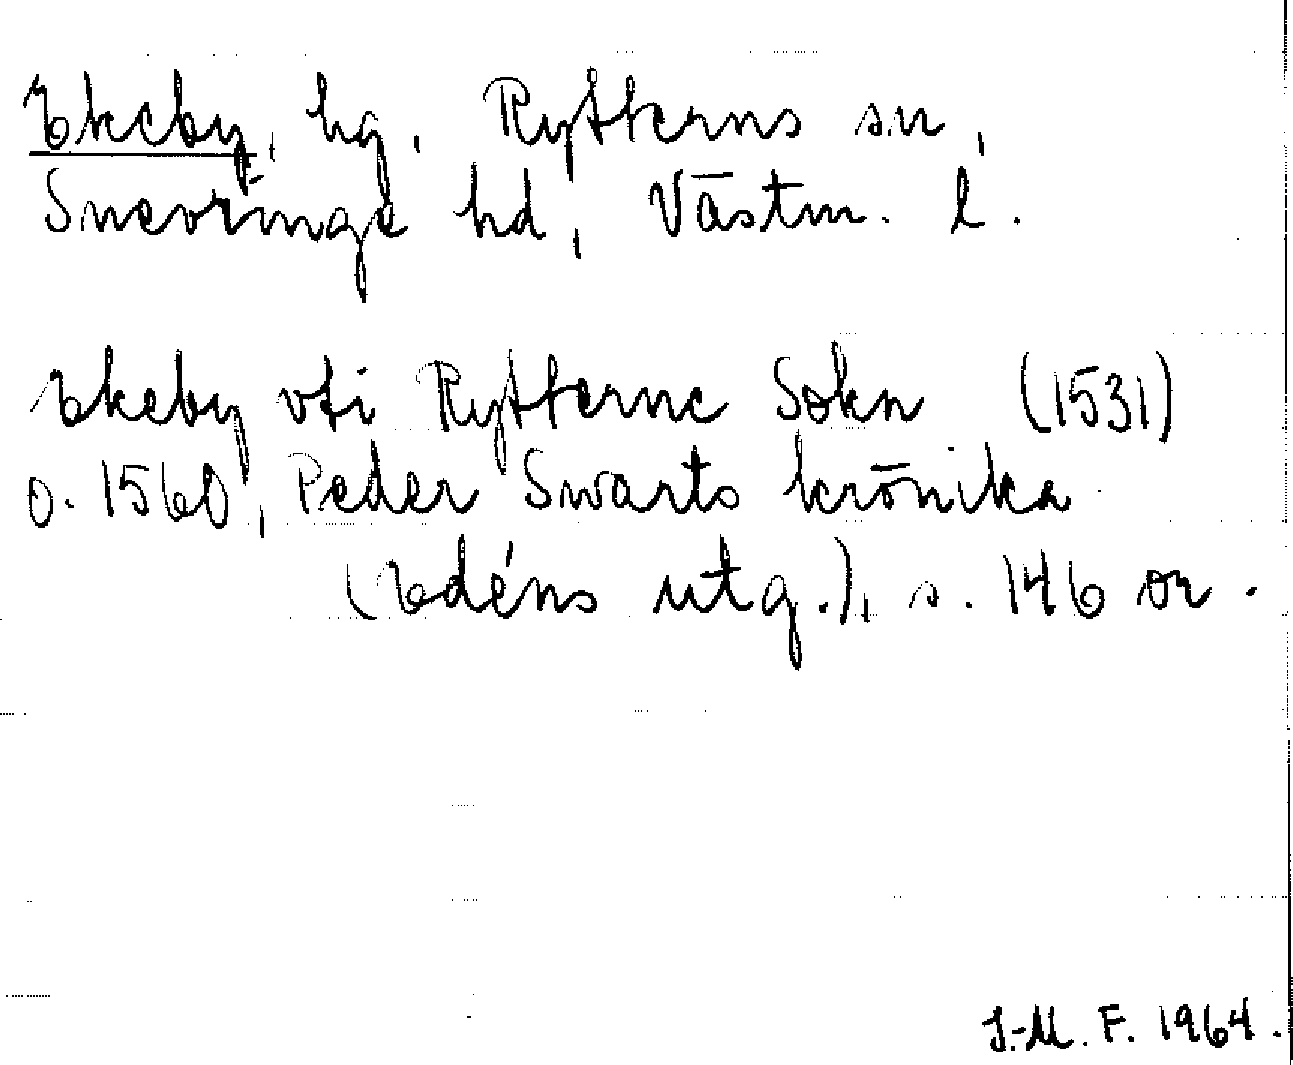 Ekeby, hg, Rytterns sn,
Snevringe hd, Västm. l.
Ekeby vti Rytterne Sokn (1531)
o. 1560, Peder Swarts krönika
(Edéns utg.), s. 146 or.
J.-M. F. 1964.